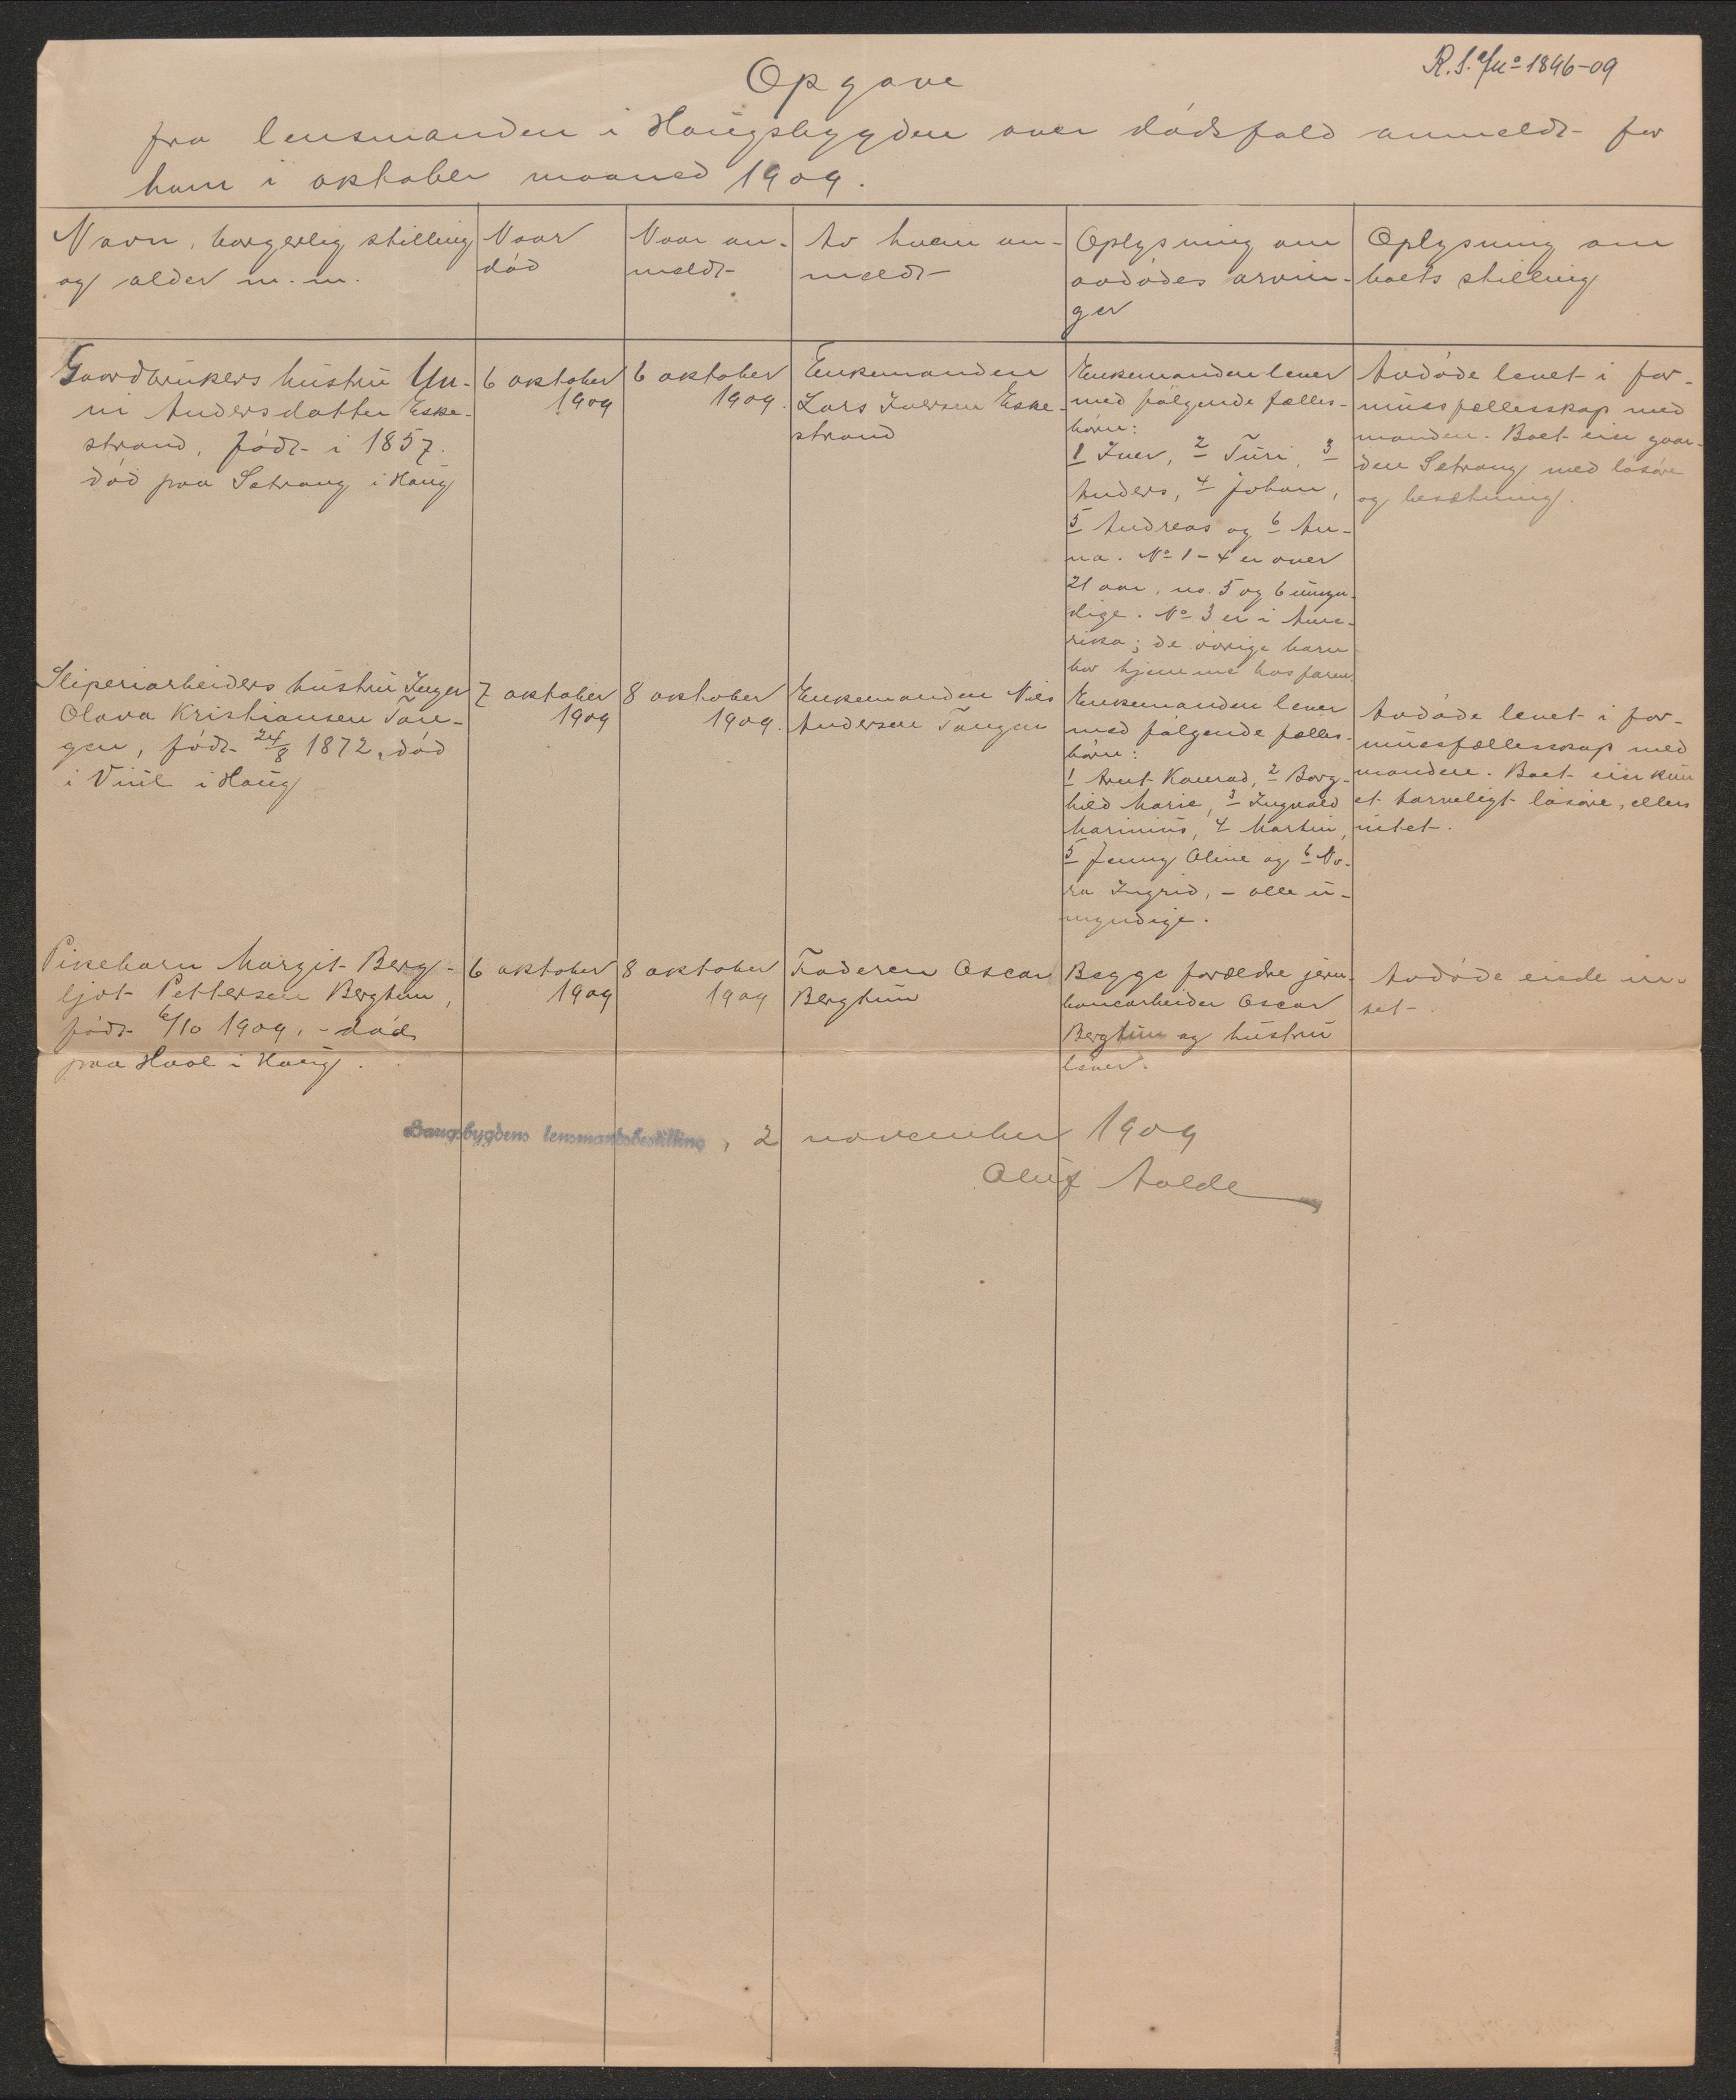 R. S. J. No 1846-09
Opgave
fra lensmanden i Haugsbygden over dødsfald anmeldt for
ham i oktober maaned 1909.
Navn, borgerlig stilling
og alder m.m.
Naar
død
Naar an-
meldt
Av hvem an-
meldt
Oplysning om
avdødes arvin-
ger
Oplysning om
boets stilling
Gaardbrukers hustru Un-
ni Andersdatter Eske-
strand, født i 1857.
død paa Setrang i Haug
6 oktober
1909
6 oktober
1909.
Enkemanden
Lars Iversen Eske-
strand
Enkemanden lever
med følgende fælles-
børn:
1 Iver, 2 Turi, 3
Anders, 4 Johan,
5 Andreas og 6 An-
na. No 1-4 er over
21 aar, no. 5 og 6 umyn-
dige. No 3 er i Ame-
rika; de øvrige barn
bor hjemme hos faren
Avdøde levet i for-
muesfællesskap med
manden. Boet eier gaar-
den Setrang med løsøre
og besætning.
Sliperiarbeiders hustru Inger
Olava Kristiansen Tan-
gen, født 24/8 1872, død
i Viul i Haug
7 oktober
1909
8 oktober
1909.
Enkemanden Nils
Andersen Tangen
Enkemanden lever
med følgende fælles-
børn:
1 Arnt Konrad, 2 Borg-
hild Marie, 3 Ingvald
Marinius, 4 Martin,
5 Jenny Oline og 6 No-
ra Ingrid, - alle u-
myndige.
Avdøde levet i for-
muesfællesskap med
manden. Boet eier kun
et tarveligt løsøre, ellers
intet.
Pikebarn Margit Berg-
ljot Pettersen Berghun,
født 6/10 1909, - død
paa Hval i Haug.
6 oktober
1909
8 oktober
1909
Faderen Oscar
Berghun
Begge forældre jern-
banearbeider Oscar
Berghun og hustru
lever.
Avdøde eiede in-
tet.
Haugsbygdens lensmandsbestilling, 2 november 1909
Oluf Aalde